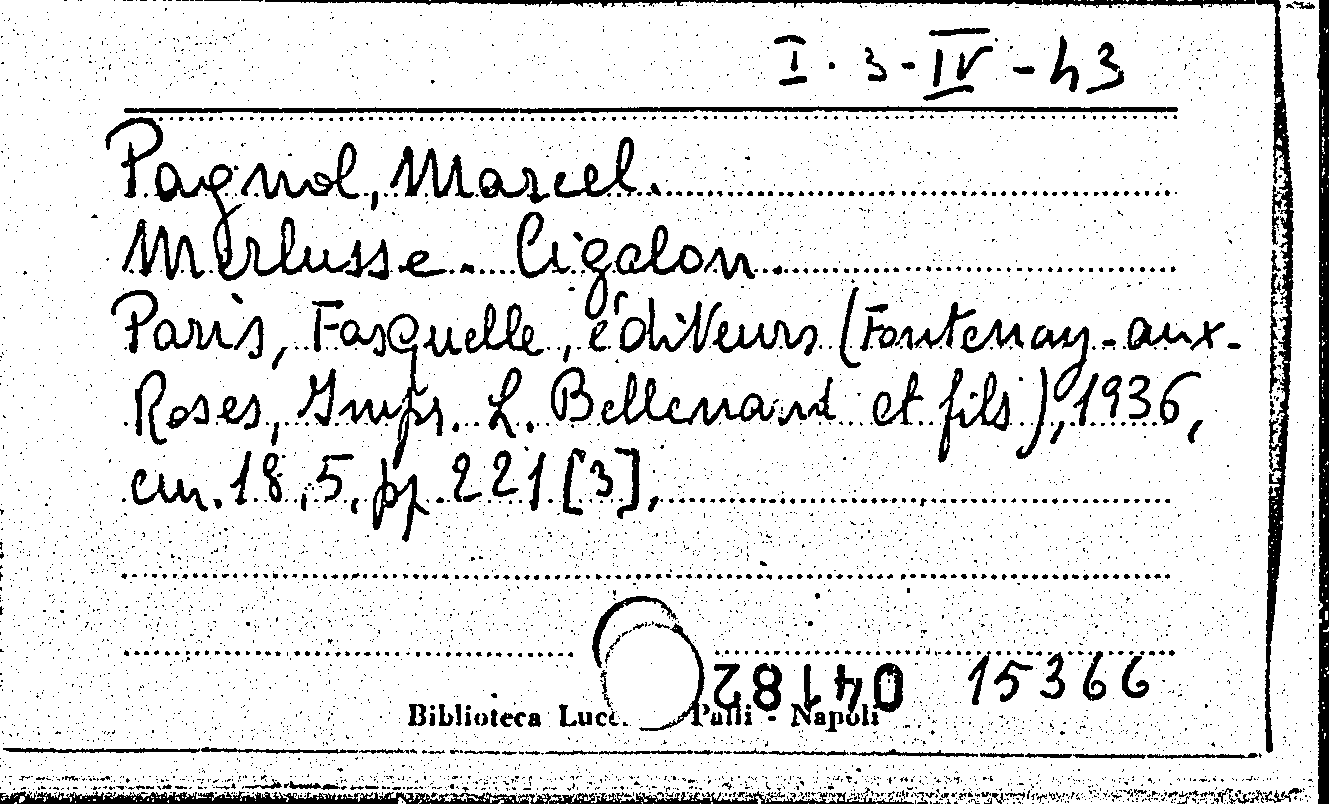 I. 3-IV-43
Pagnol, Marcel.
Merlusse. Cigalon.
Paris, Fasquelle, éditeurs (Fontenay-aux-
Roses, Imps. L. Bellenand et fils), 1936,
cm. 18,5, pp. 221 [3].
04182 15366
Biblioteca Palli - Napoli